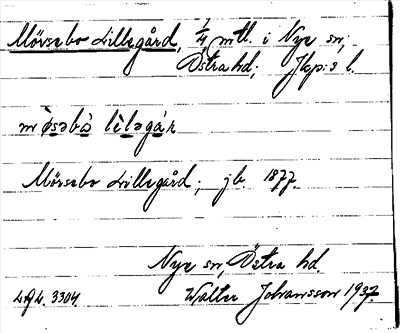 Mörsebo Lillegård, 1/4 mtl. i Nye sn,
Östra hd; Jkp:s l.
Mörsebo Lillegård; jb. 1877.
Nye sn, Östra hd.
Walter Johansson 1937.